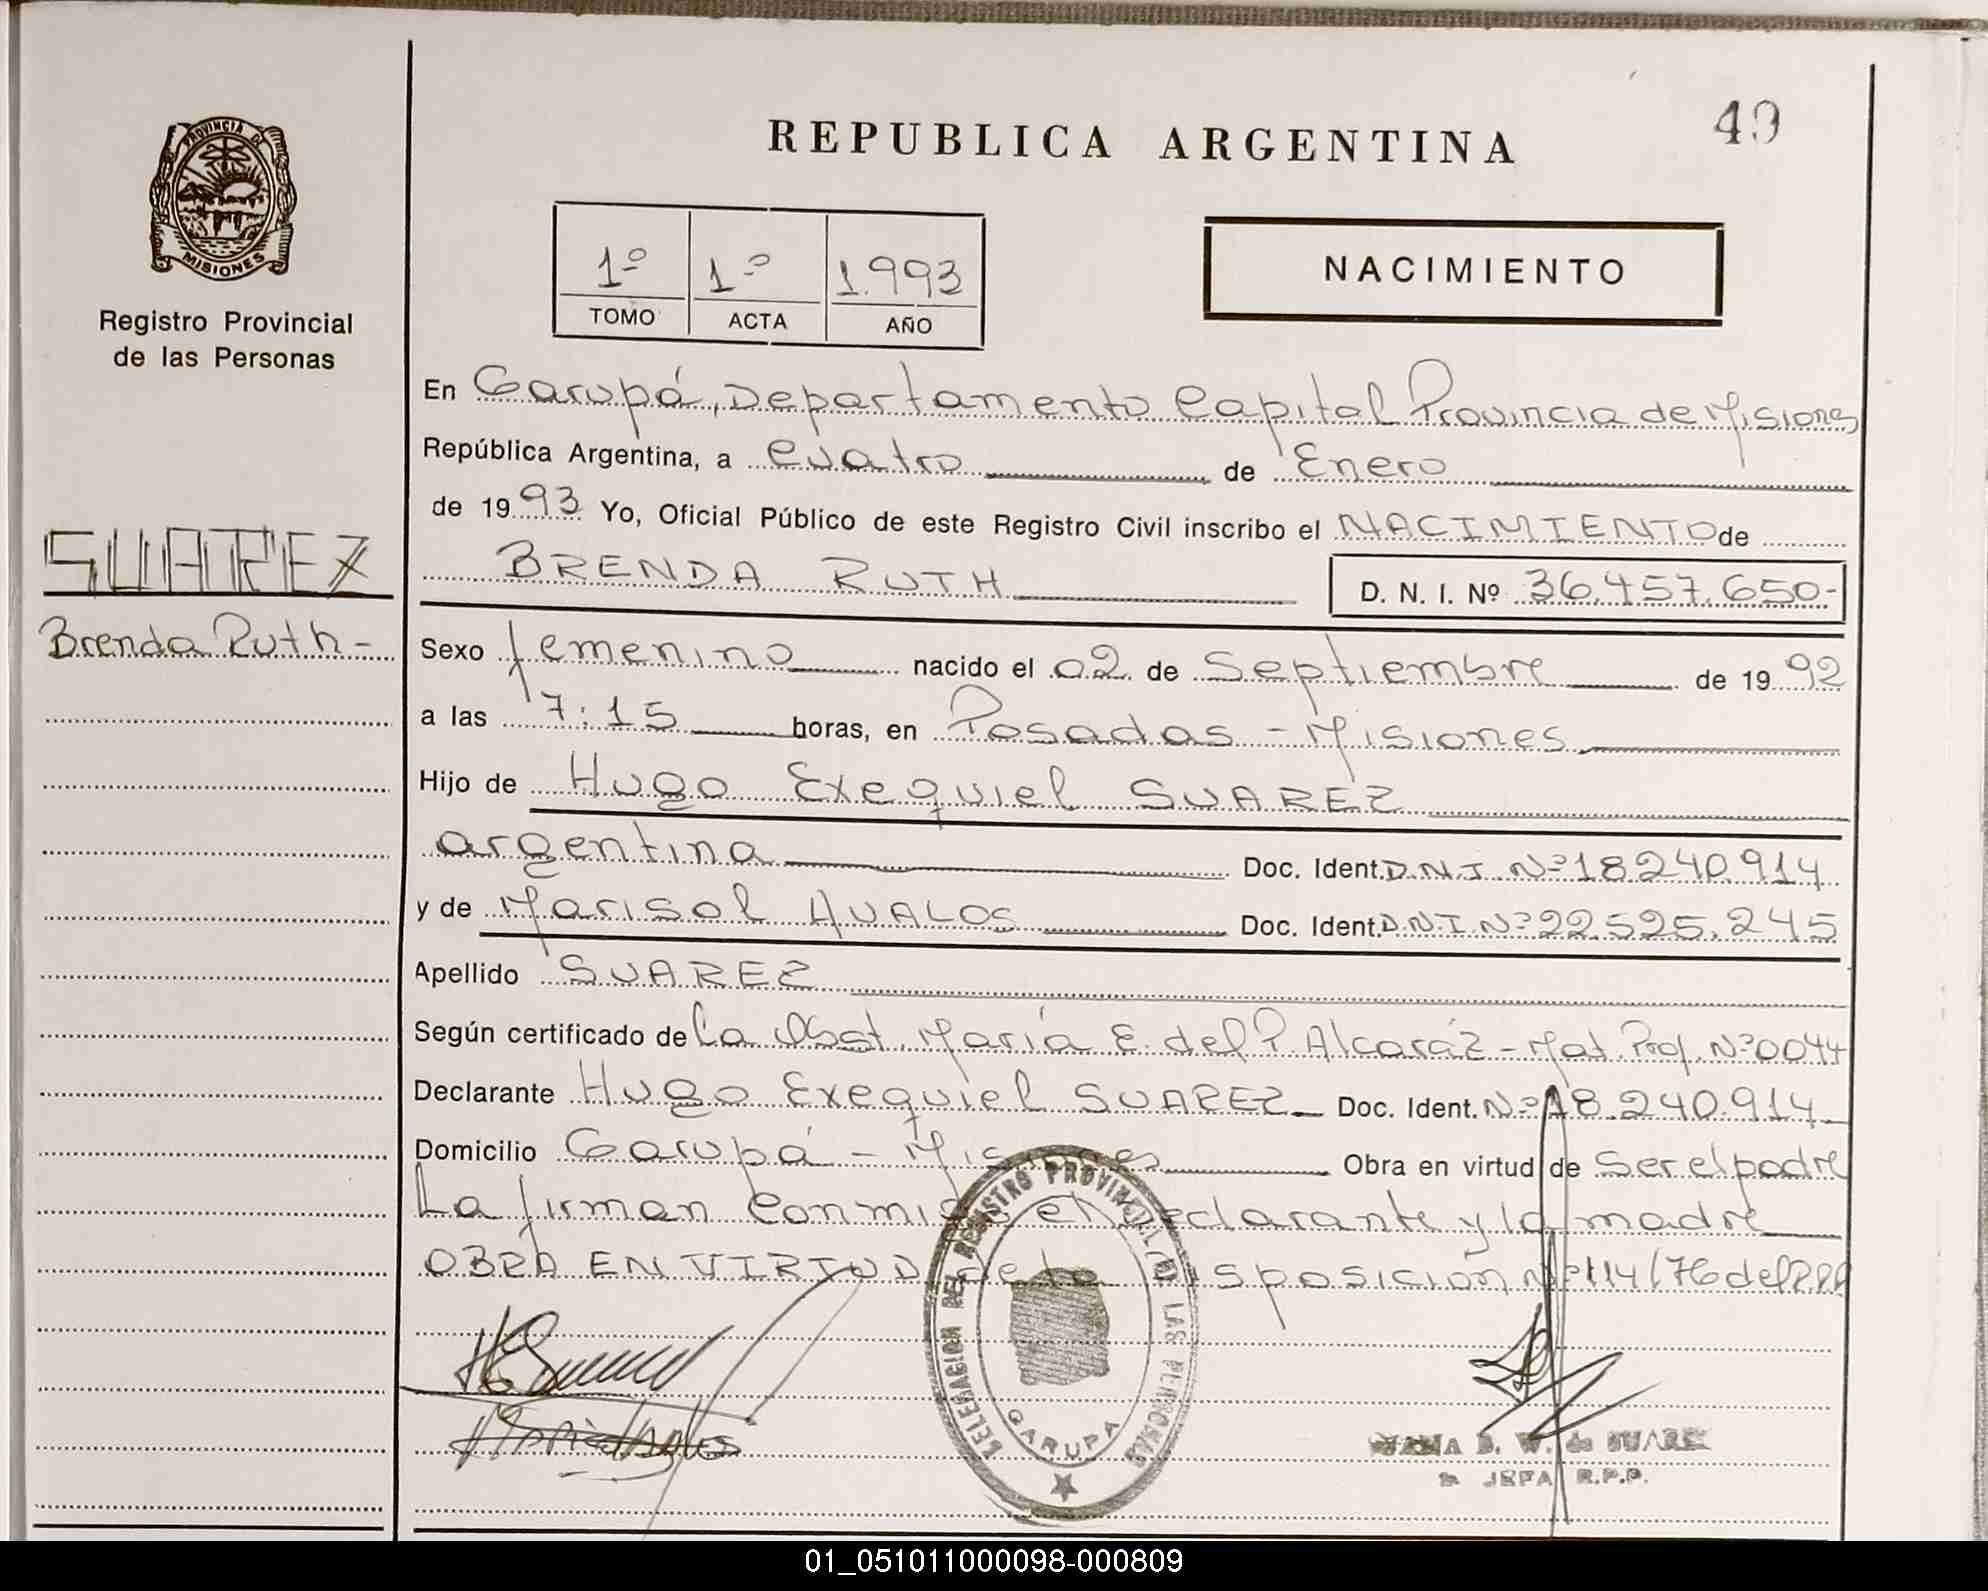 49
REPUBLICA ARGENTINA
PROVINCIA DE
MISIONES
Registro Provincial
de las Personas
1º 1º 1.993
TOMO ACTA AÑO
NACIMIENTO
En Garupá, Departamento Capital Provincia de Misiones
República Argentina, a cuatro de Enero
de 1993 Yo, Oficial Público de este Registro Civil inscribo el NACIMIENTO de
BRENDA RUTH D. N. I. Nº 36.457.650-
SUAREZ
Brenda Ruth-
Sexo femenino nacido el 02 de Septiembre de 1992
a las 7:15 horas, en Posadas - Misiones
Hijo de Hugo Exequiel SUAREZ
argentina Doc. Ident. D.N.I. Nº 18.240.914
y de Marisol AVALOS Doc. Ident. D.N.I. Nº 22.525.245
Apellido SUAREZ
Según certificado de La Obst. María E. del P. Alcaráz - Mat. Prof. Nº 0044
Declarante Hugo Exequiel SUAREZ Doc. Ident. Nº 18.240.914
Domicilio Garupá - Misiones Obra en virtud de Ser el padre
La firman conmigo el declarante y la madre
OBRA EN VIRTUD de la Disposición Nº 114/76 del RPP
DELEGACION DEL REGISTRO PROVINCIAL DE LAS PERSONAS
GARUPA
B. W. de SUAREZ
JEFA R.P.P.
01_051011000098-000809